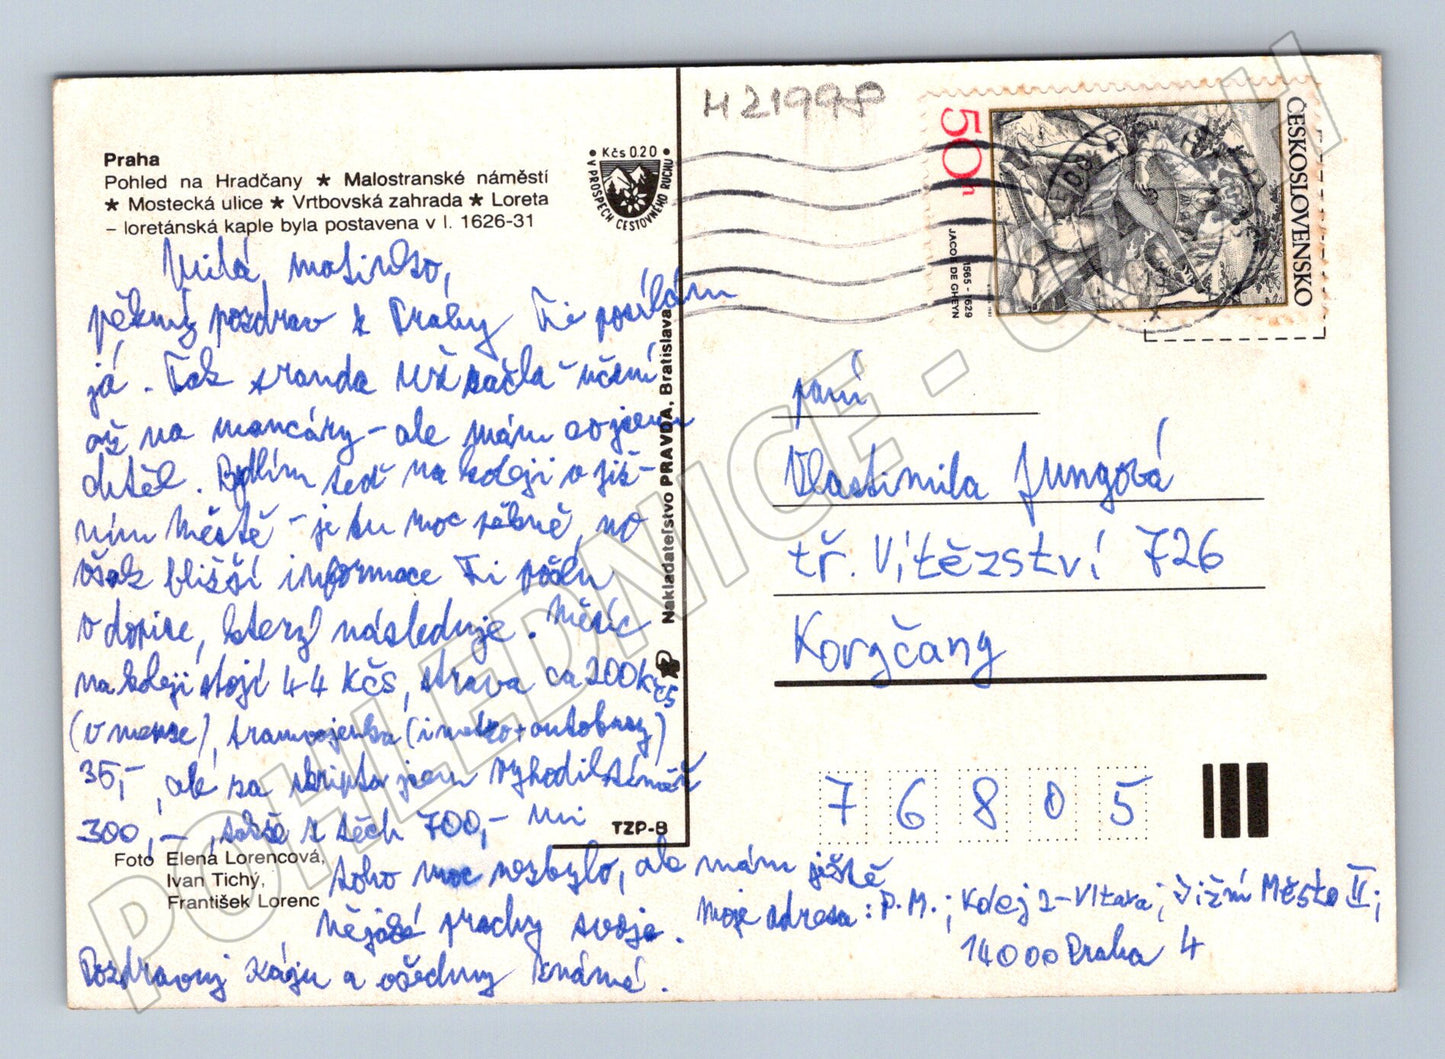 H21998
Praha
Pohled na Hradčany ★ Malostranské náměstí
★ Mostecká ulice ★ Vrtbovská zahrada ★ Loreta
– loretánská kaple byla postavena v l. 1626-31
• Kčs 0.20 •
V PROSPĚCH CESTOVNÍHO RUCHU
50h
ČESKOSLOVENSKO
1565 - 1629
JACOB DE GHEYN
Milá matinko,
pěkný pozdrav z Prahy Ti posílám
já. Tak sranda už začla – učení
až na mančáry – ale mám co jsem
chtěl. Bydlím teď na koleji v Již-
ním Městě – je tu moc pěkně, no
však bližší informace Ti pošlu
v dopise, který následuje. Měsíc
na koleji stojí 44 Kčs, strava ca 200 Kčs
(v menze), tramvajenka (i metro + autobusy)
35,-, ale za skripta jsem vyhodil téměř
300,–, takže z těch 700,- mi
toho moc nezbylo, ale mám ještě
nějaké prachy svoje.
Pozdravuj Káju a všechny známé.
Moje adresa: P.M.; Kolej 2-Vltava; Jižní Město II;
14000 Praha 4
paní
Vlastimila Jungová
tř. Vítězství 726
Koryčany
76805
Nakladateľstvo PRAVDA, Bratislava
TZP-B
Foto Elena Lorencová,
Ivan Tichý,
František Lorenc
POHLEDNICE - O - H